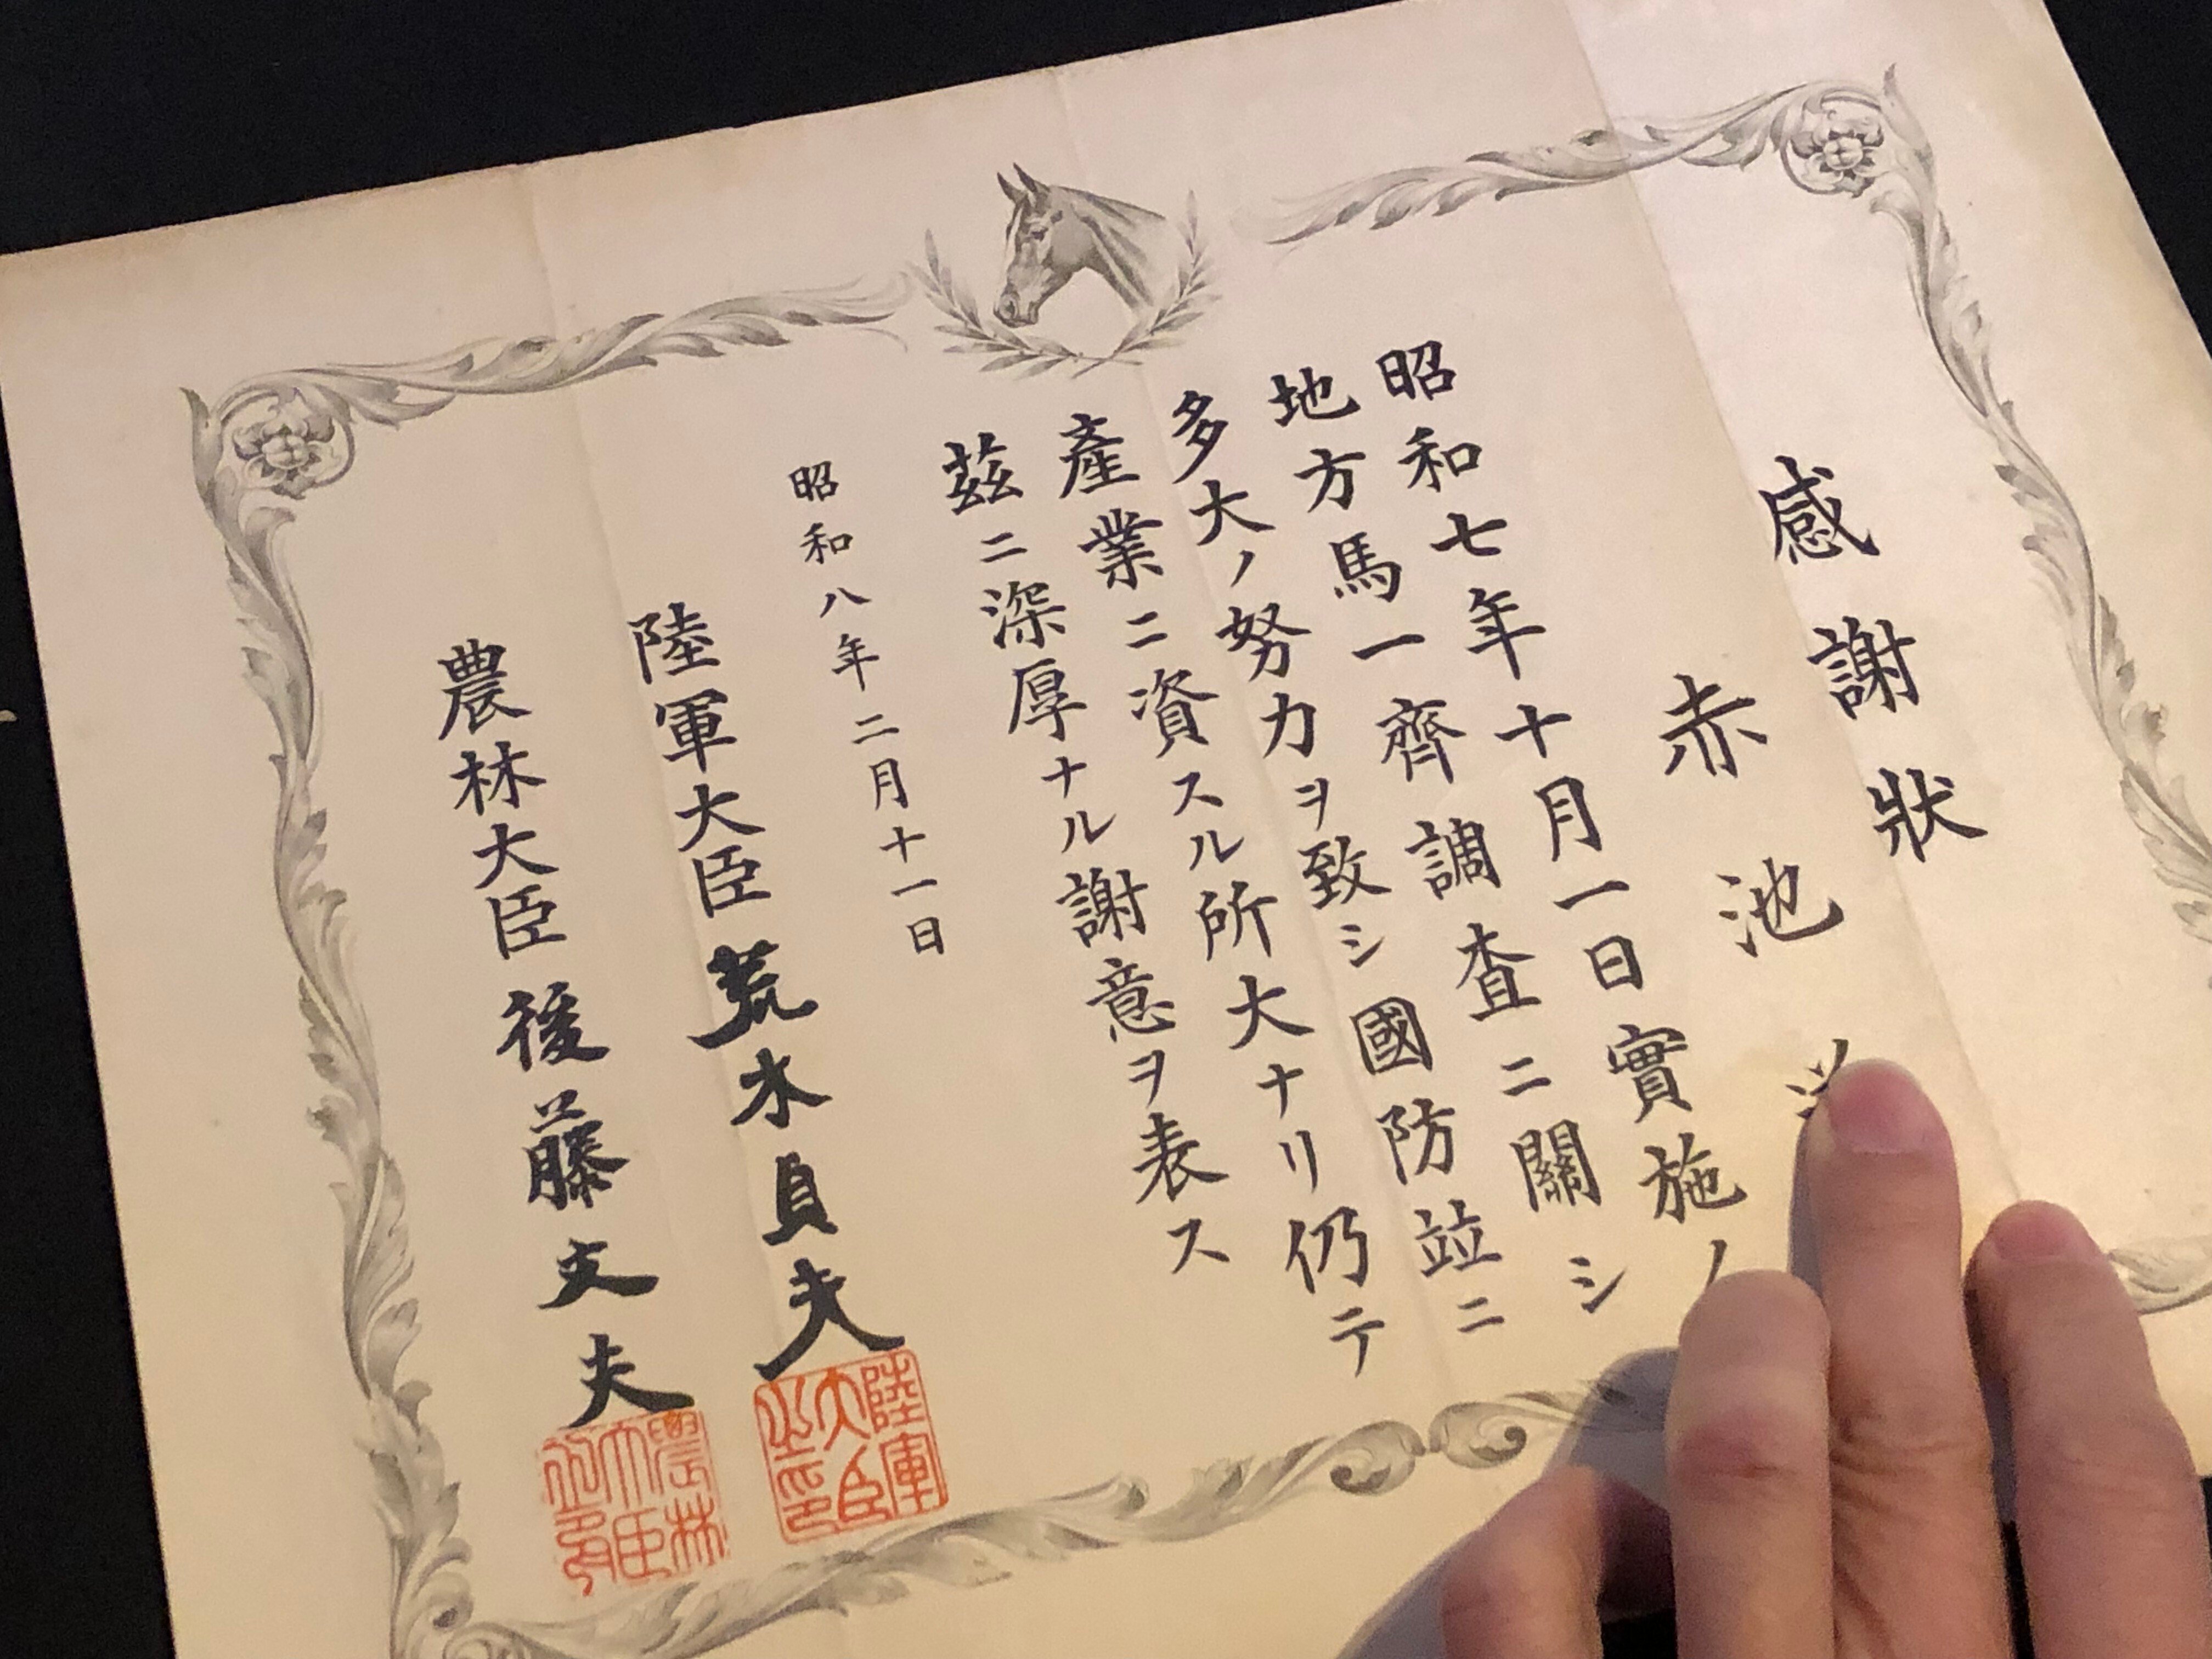 感謝狀
赤池
昭和七年十月一日實施ノ
地方馬一齊調査ニ關シ
多大ノ努力ヲ致シ國防竝ニ
產業ニ資スル所大ナリ仍テ
茲ニ深厚ナル謝意ヲ表ス
昭和八年二月十一日
陸軍大臣荒木貞夫
農林大臣後藤文夫
陸軍
大臣
之印
農林
大臣